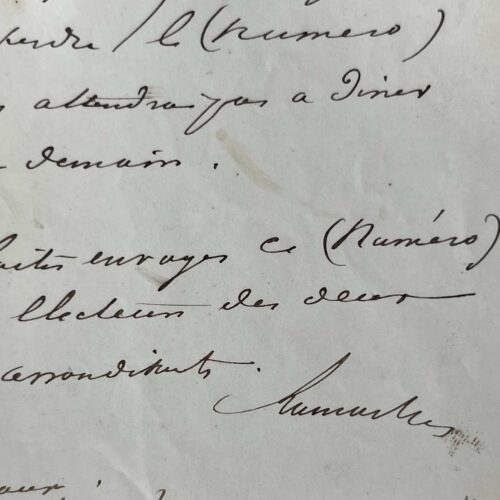 perdre / le (Numéro)
attendrai pas a diner
demain.
faites envoyer ce (Numéro)
électeurs des deux
arrondisnts.